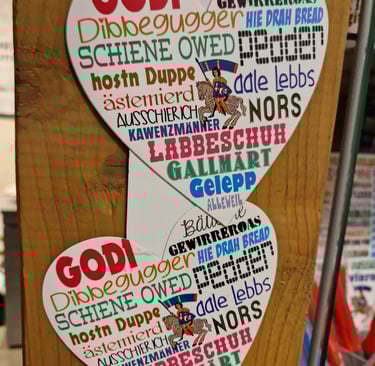 GODI
GEWIRREROAS
Dibbegugger
HIE DRAH BREAD
SCHIENE OWED
pedden
hostn Duppe
aale Lebbs
ästemierd
NORS
AUSSCHIERICH
KAWENZMÄNNER
LABBESCHUH
GALLMÄRT
Gelepp
ALLEWEIL
GEWIRREROAS
GODI
HIE DRAH BREAD
Dibbegugger
pedden
SCHIENE OWED
aale Lebbs
hostn Duppe
NORS
ästemierd
AUSSCHIERICH
KAWENZMÄNNER
LABBESCHUH
GALLMÄRT